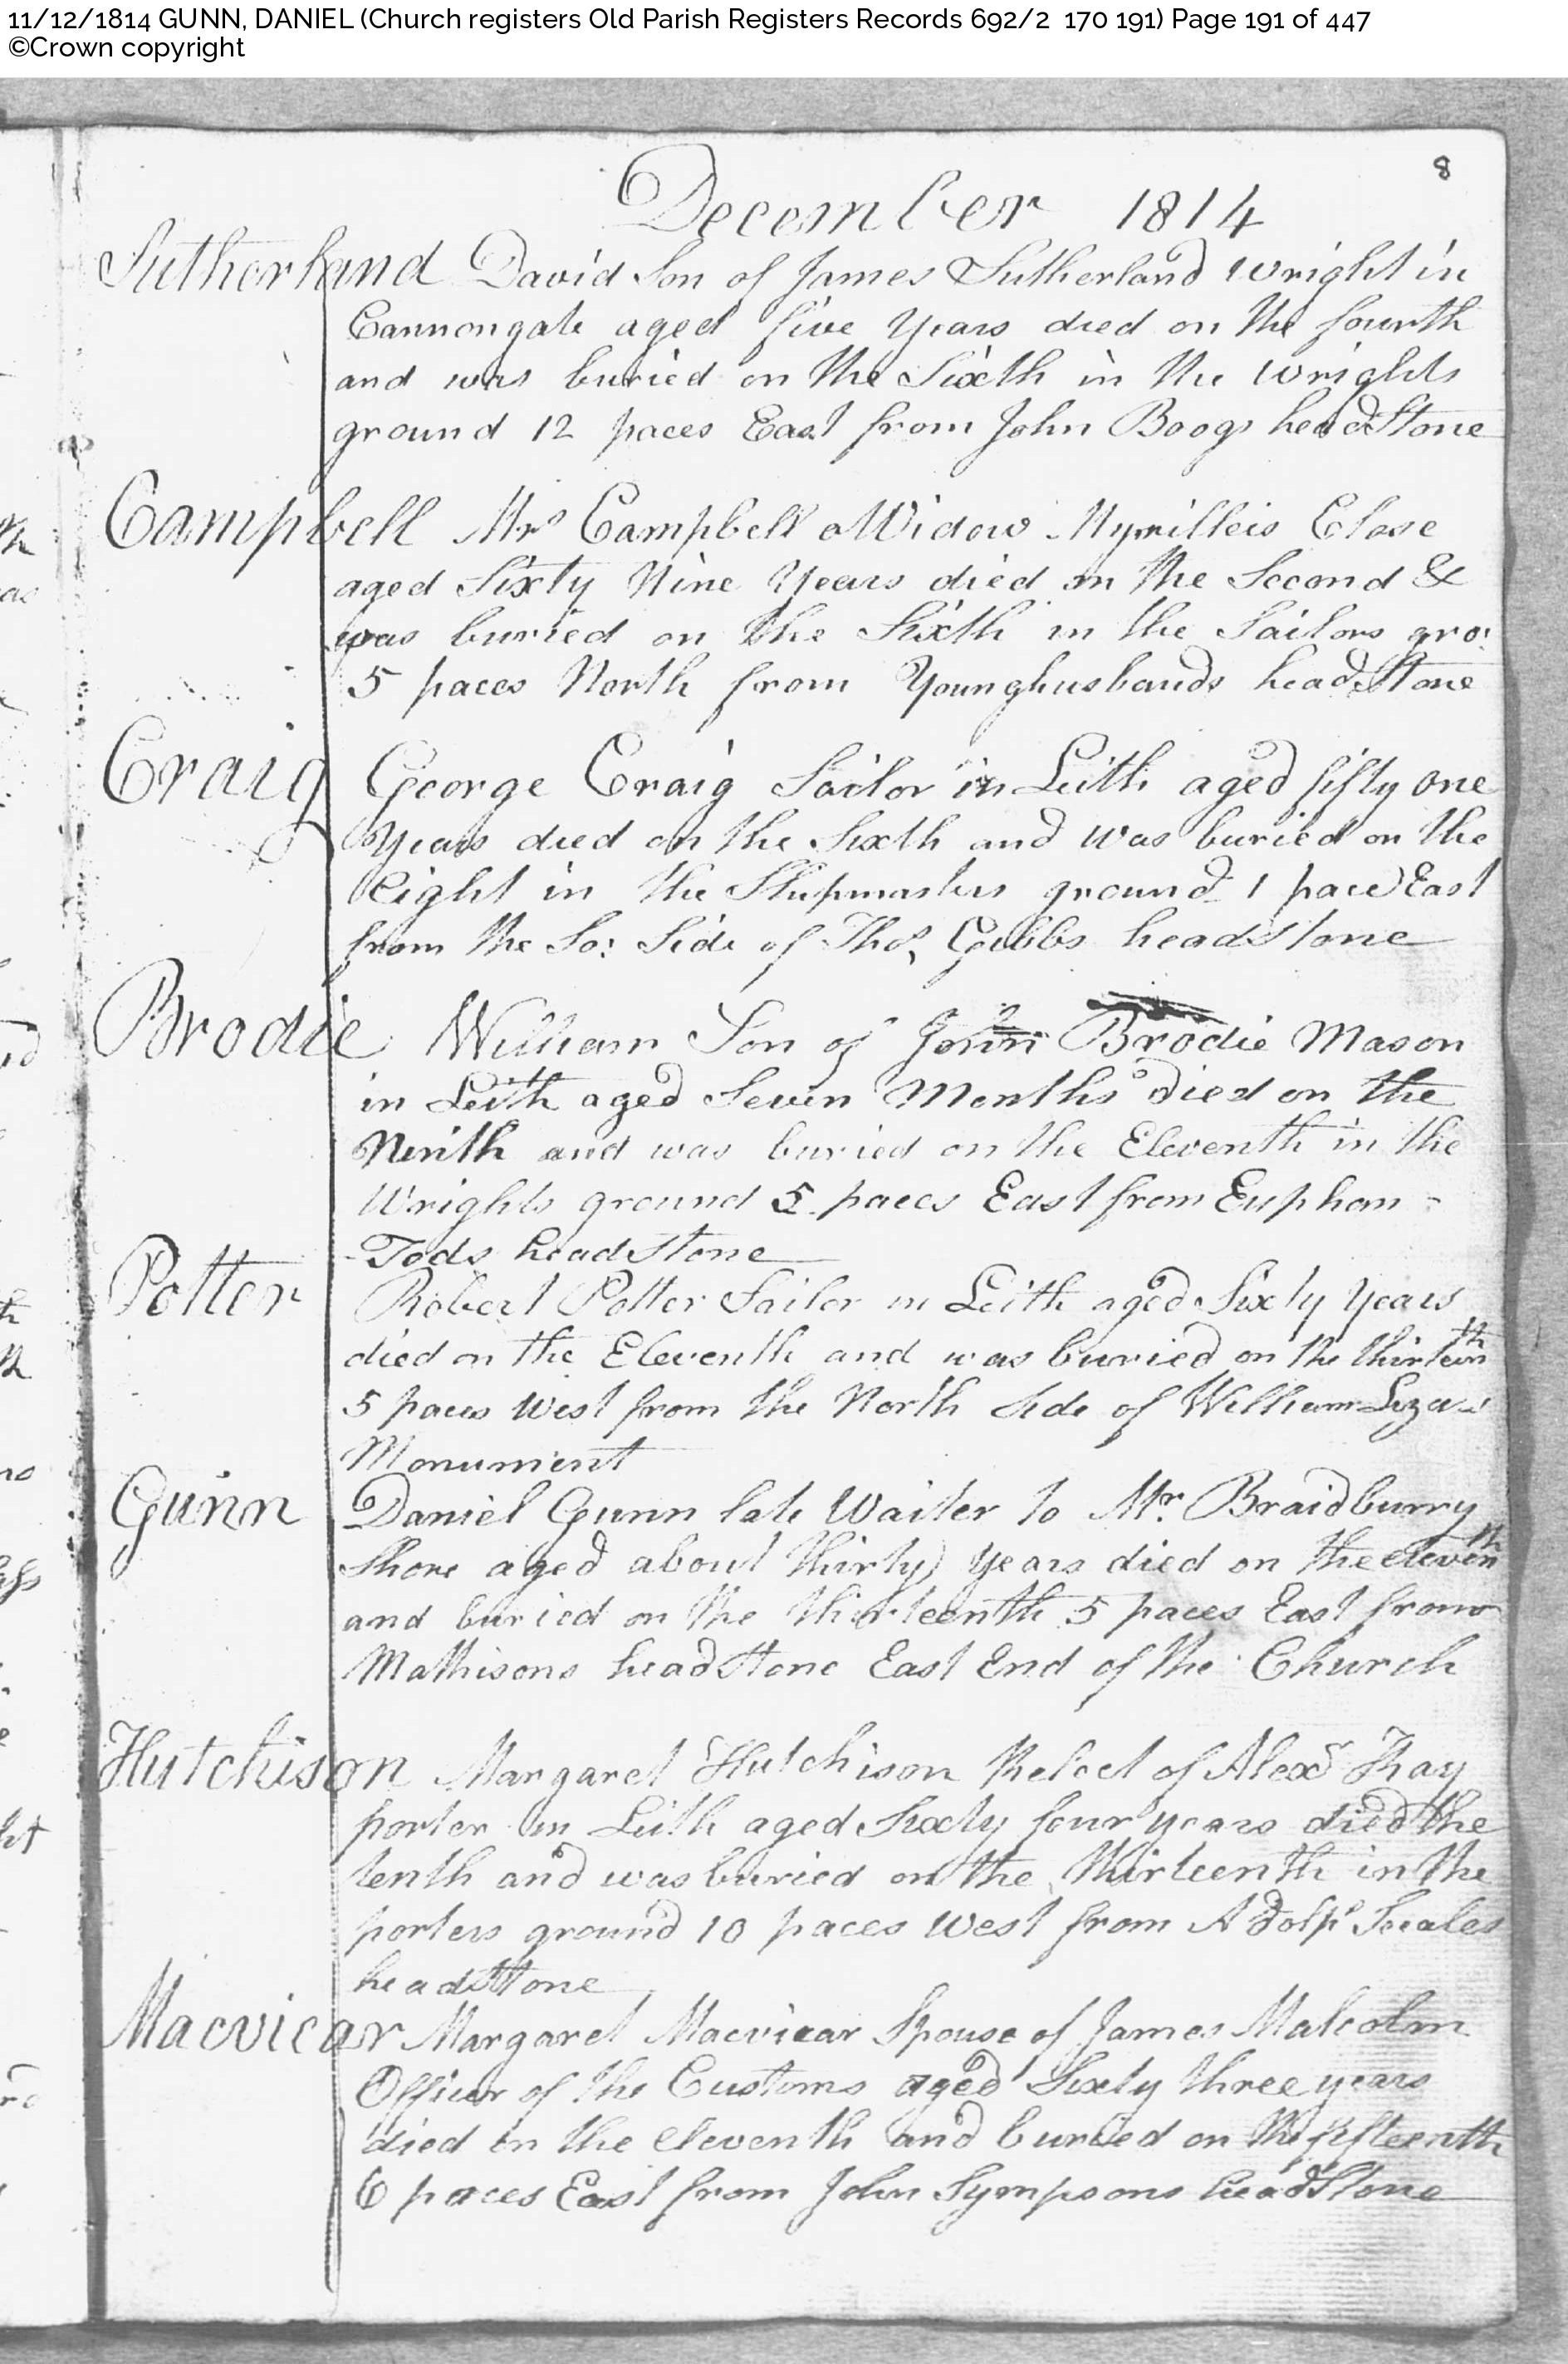 11/12/1814 GUNN, DANIEL (Church registers Old Parish Registers Records 692/2 170 191) Page 191 of 447
©Crown copyright
8
December 1814
Sutherland David Son of James Sutherland Wright in
Cannongate aged five Years died on the fourth
and was buried on the Sixth in the Wrights
ground 12 paces East from John Boogs headStone
Campbell Mrs Campbell a Widow Close
aged Sixty Nine Years died on the Second &
was buried on the Sixth in the Sailors gro:
5 paces North from Younghusbands headStone
Craig George Craig Sailor in Leith aged fifty one
Years died on the Sixth and was buried on the
Eight in the Shipmasters ground 1 pace East
from the So: Side of Thos. Gibbs headStone
Brodie William Son of John Brodie Mason
in Leith aged Seven Months died on the
Ninth and was buried on the Eleventh in the
Wrights ground 5 paces East from Eupham -
- Tods headStone
Potter Robert Potter Sailor in Leith aged Sixty Years
died on the Eleventh and was buried on the thirteenth
5 paces West from the North Side of William
Monument
Gunn Daniel Gunn late Waiter to Mr. Braidburry
Shore aged about thirty Years died on the eleventh
and buried on the thirteenth 5 paces East from
Mathisons headStone East End of the Church
Hutchison Margaret Hutchison Relect of Alexr
porter in Leith aged Sixty four years died the
tenth and was buried on the thirteenth in the
porters ground 10 paces West from Adolps Scales
headStone
Macvicar Margaret Macvicar Spouse of James Malcolm
Officer of the Customs aged Sixty three years
died on the eleventh and buried on the fifteenth
6 paces East from John Sympsons headStone